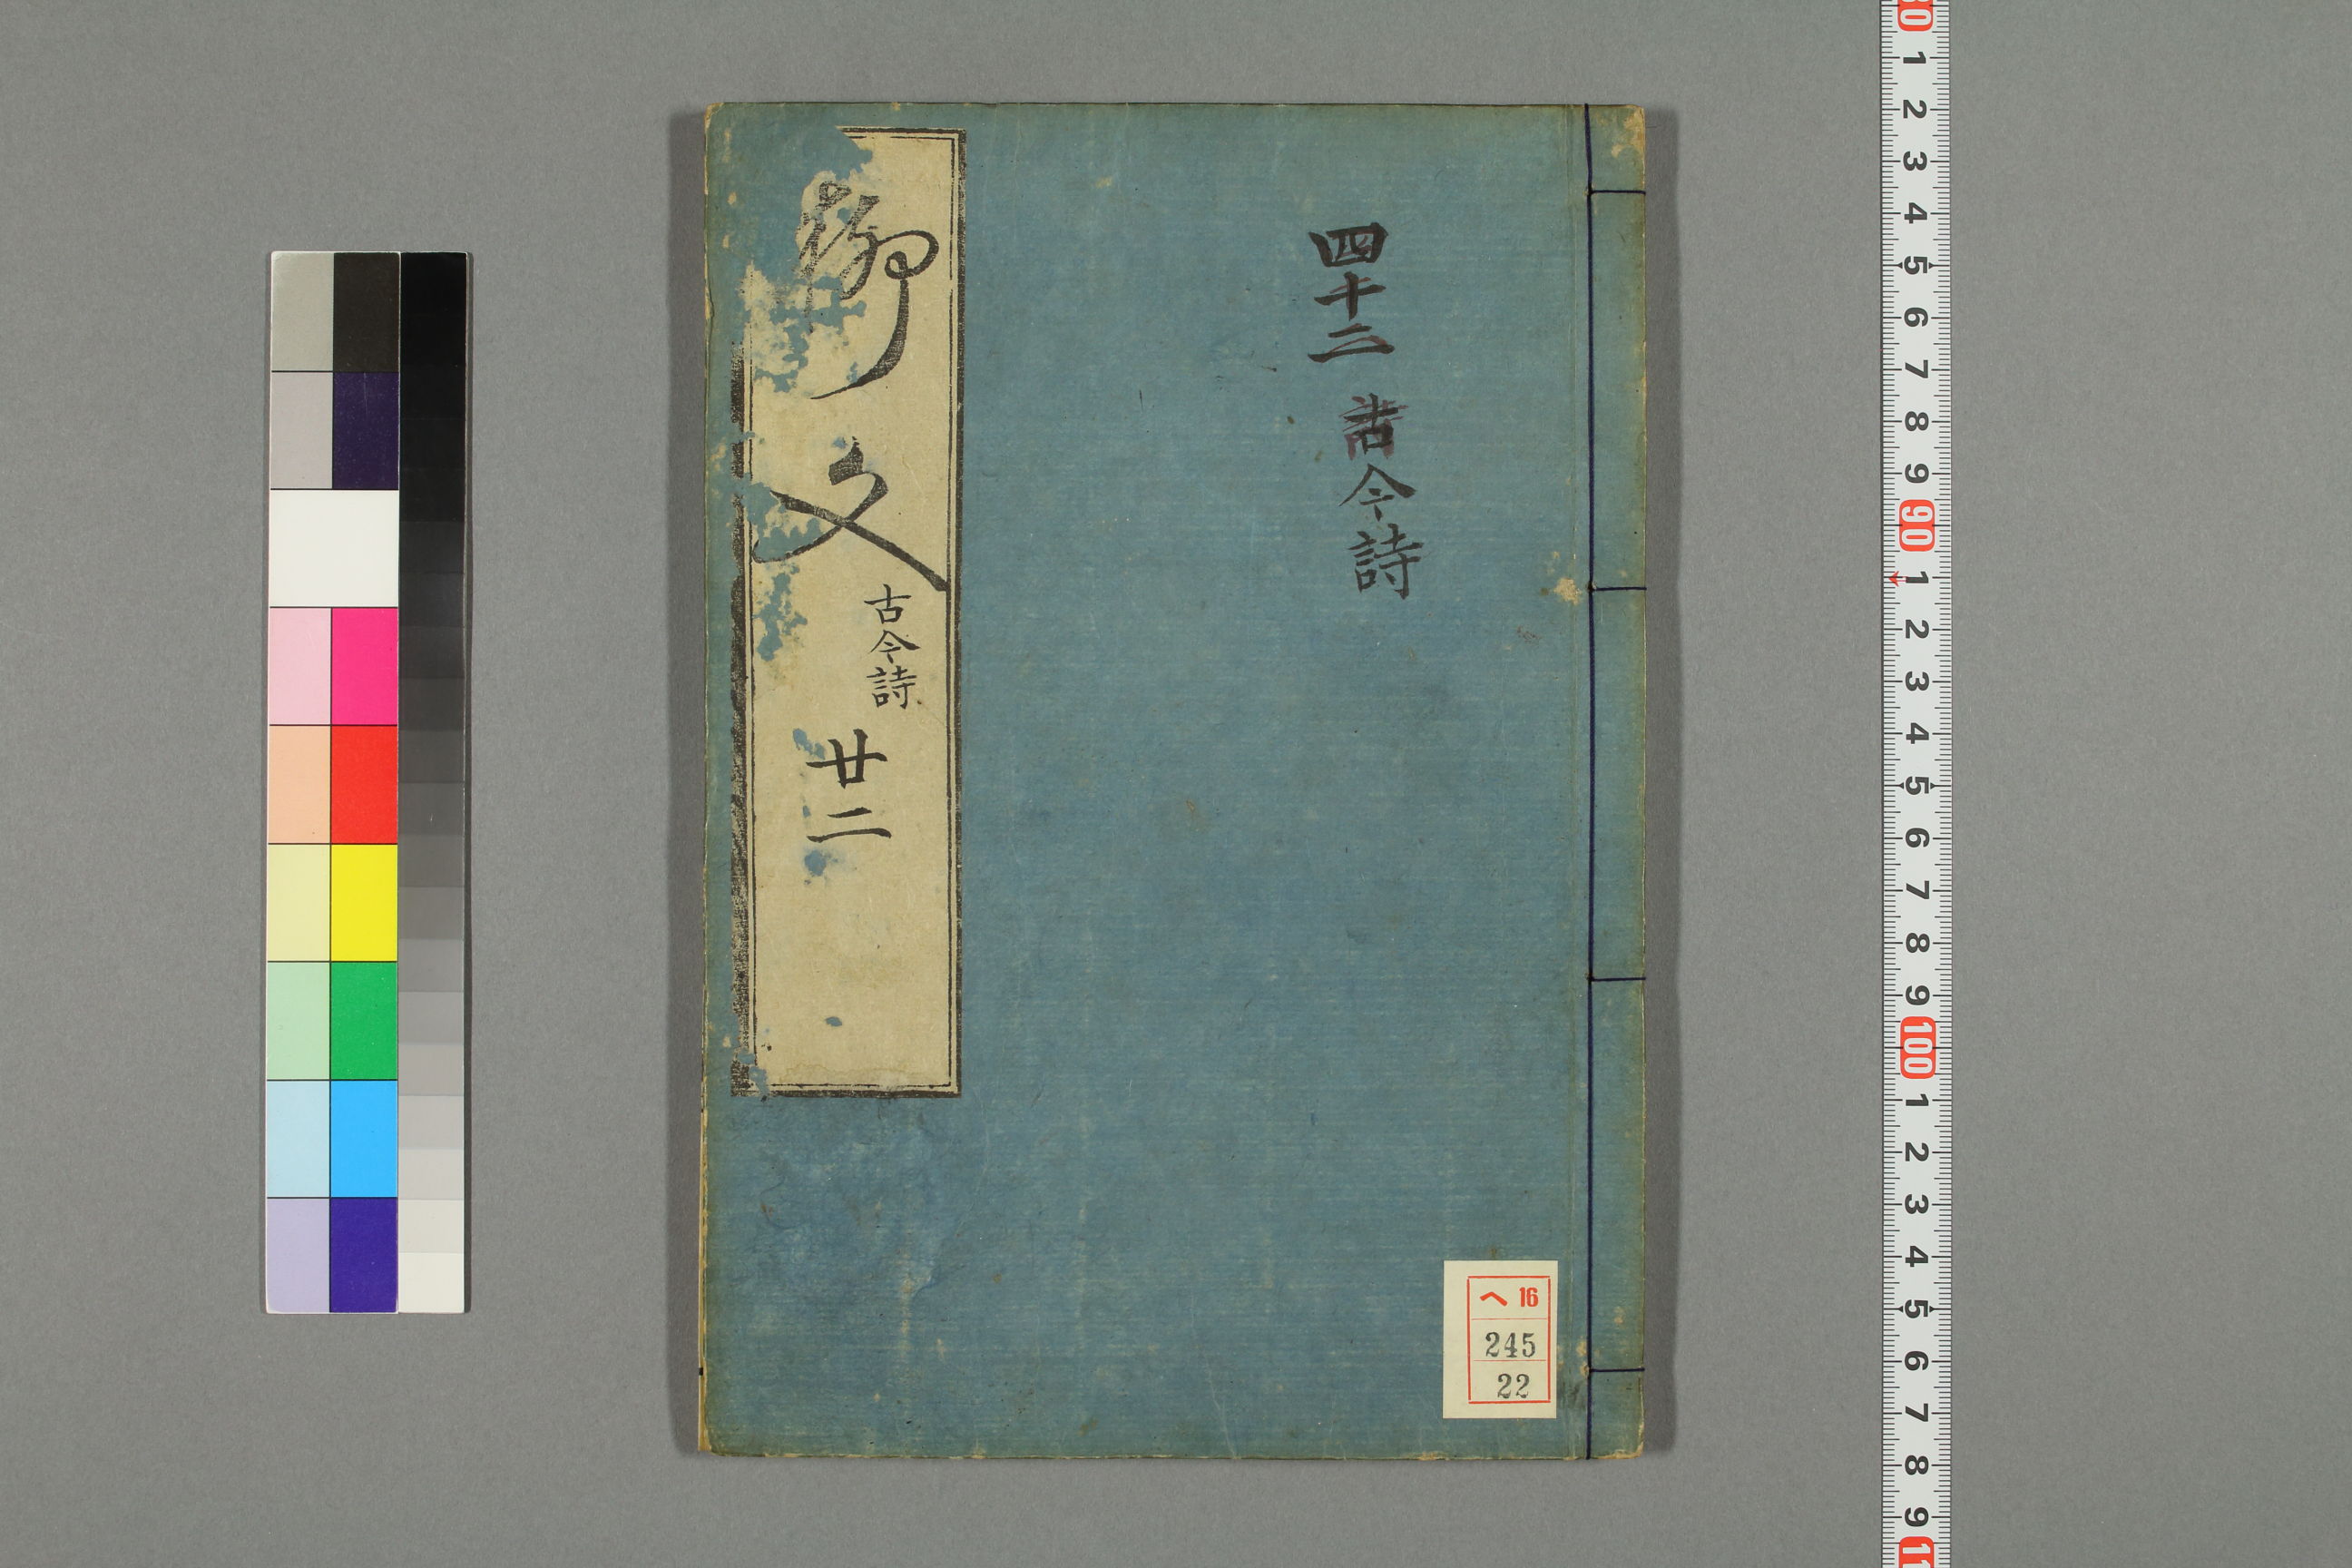 四十二 古今詩
柳文
古今詩
廿二
ヘ 16
245
22
80
1
2
3
4
5
6
7
8
9
90
1
2
3
4
5
6
7
8
9
100
1
2
3
4
5
6
7
8
9